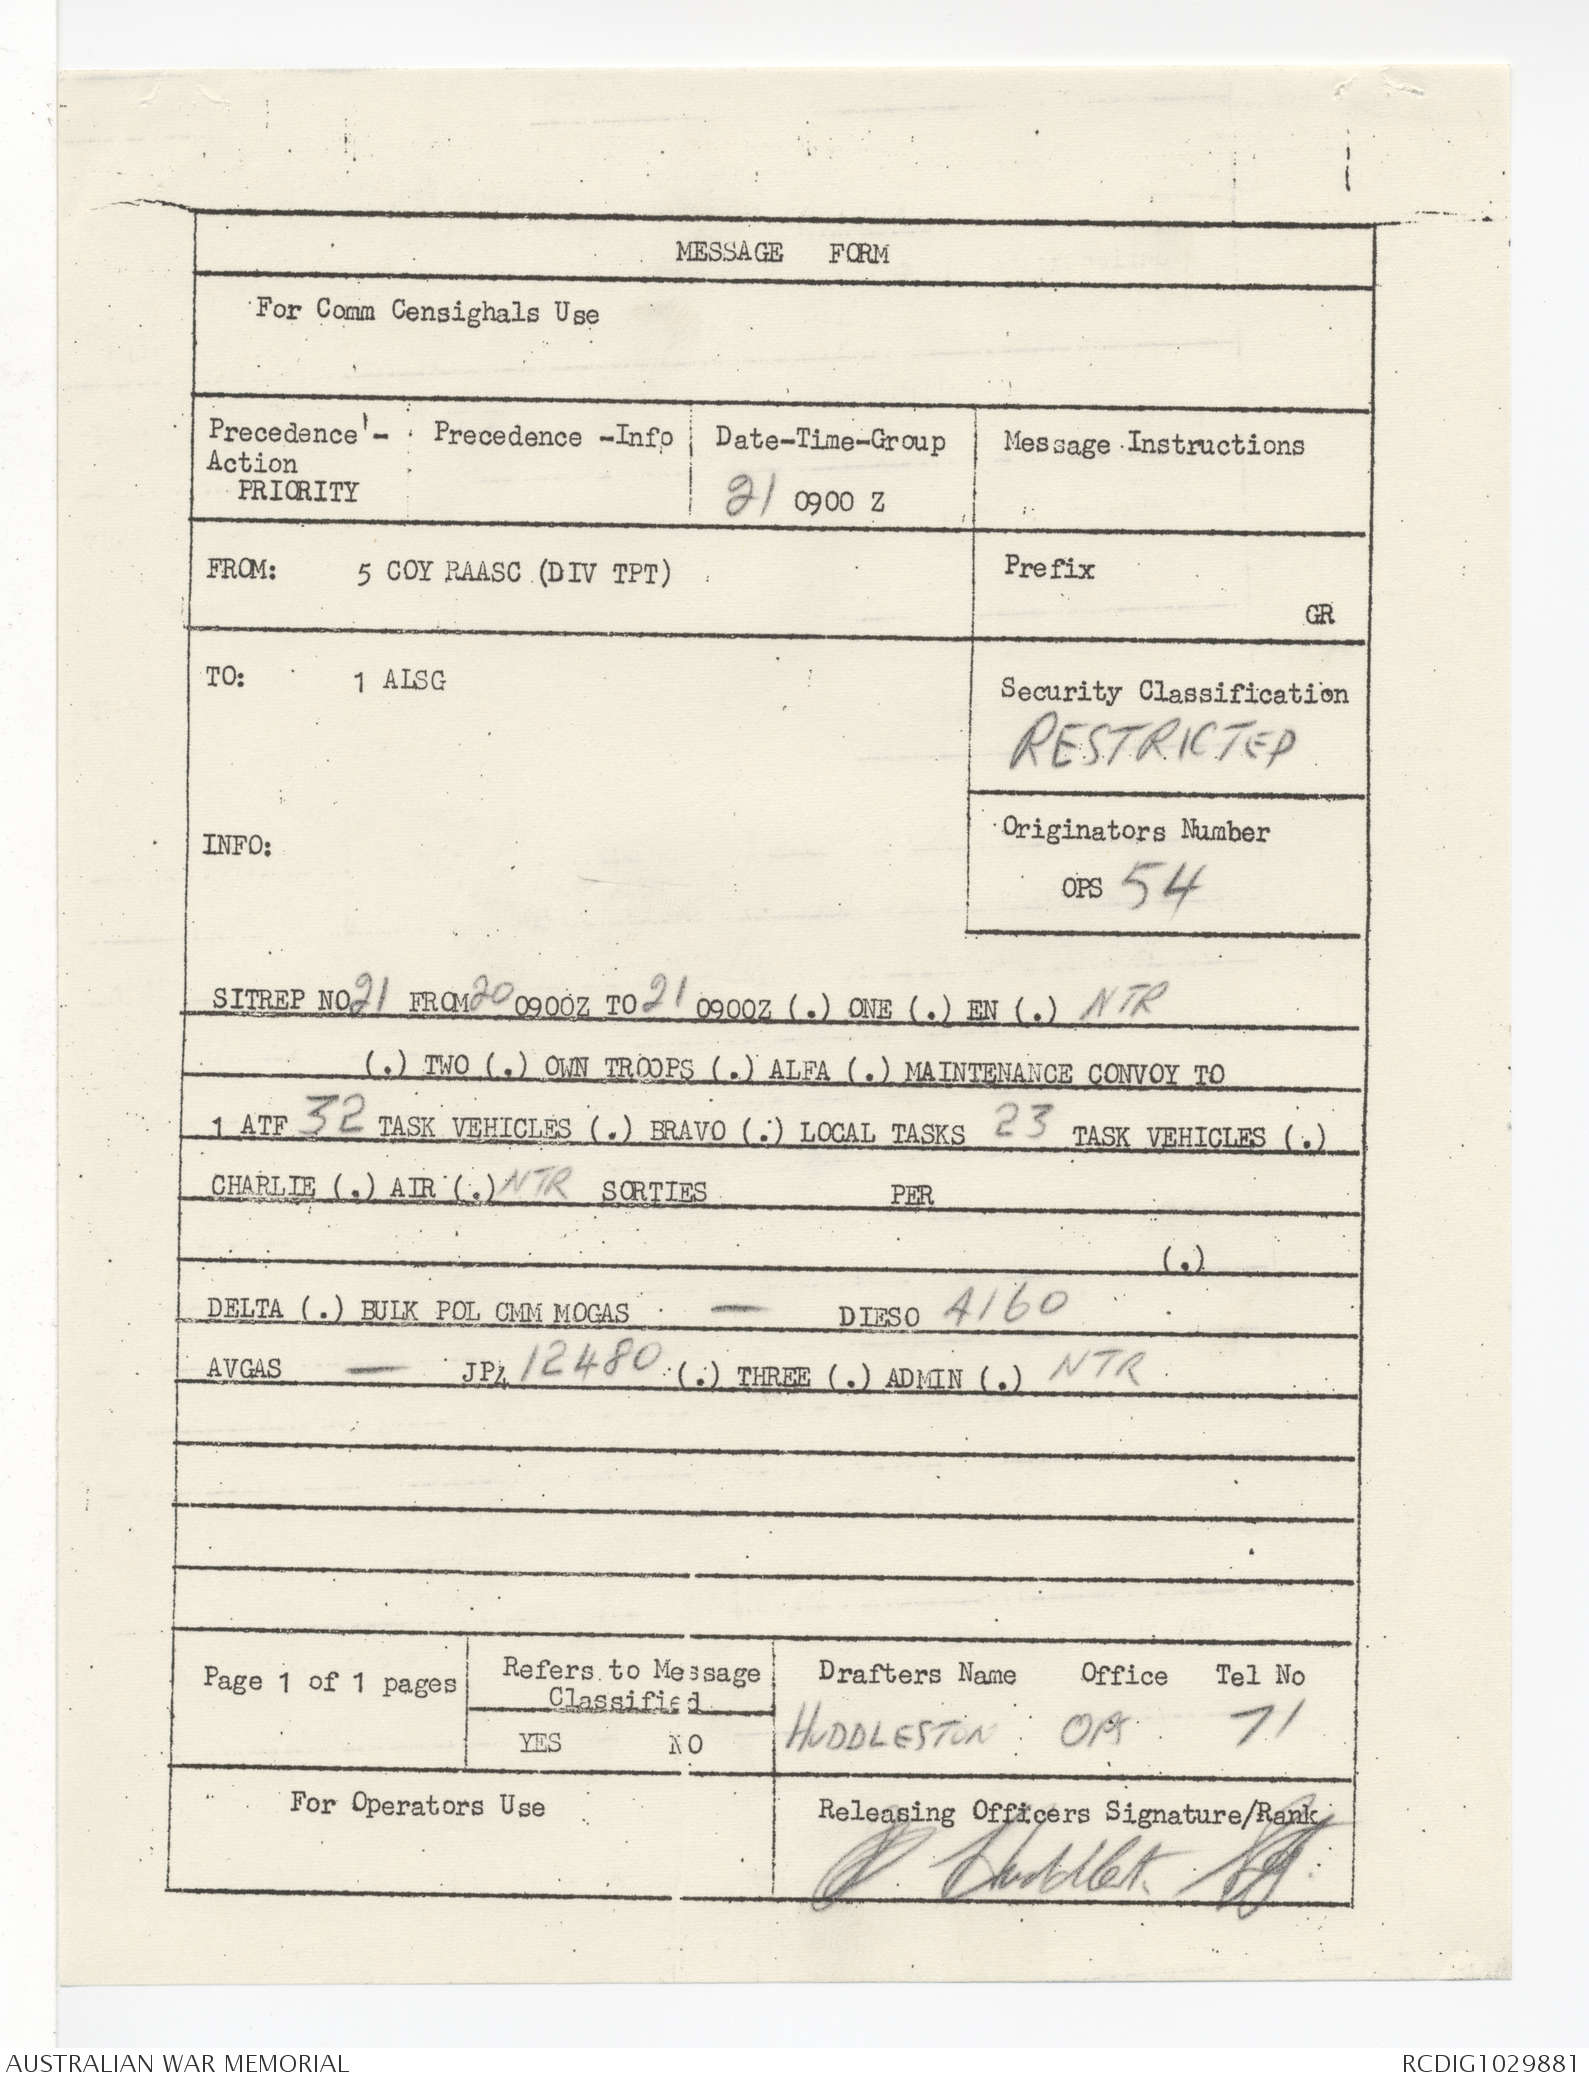 MESSAGE FORM
For Comm Censighals Use
Precedence - Precedence -Info Date-Time-Group Message Instructions
Action
PRIORITY 21 0900 Z
FROM: 5 COY RAASC (DIV TPT) Prefix
GR
TO: 1 ALSG Security Classification
RESTRICTED
INFO: Originators Number
OPS 54
SITREP NO 21 FROM 20 0900Z TO 21 0900Z (.) ONE (.) EN (.) NTR
(.) TWO (.) OWN TROOPS (.) ALFA (.) MAINTENANCE CONVOY TO
1 ATF 32 TASK VEHICLES (.) BRAVO (.) LOCAL TASKS 23 TASK VEHICLES (.)
CHARLIE (.) AIR (.) NTR SORTIES PER
(.)
DELTA (.) BULK POL CMM MOGAS — DIESO 4160
AVGAS — JP4 12480 (.) THREE (.) ADMIN (.) NTR
Page 1 of 1 pages Refers to Message Drafters Name Office Tel No
Classified
YES NO HUDDLESTON OPS 71
For Operators Use Releasing Officers Signature/Rank
AUSTRALIAN WAR MEMORIAL RCDIG1029881